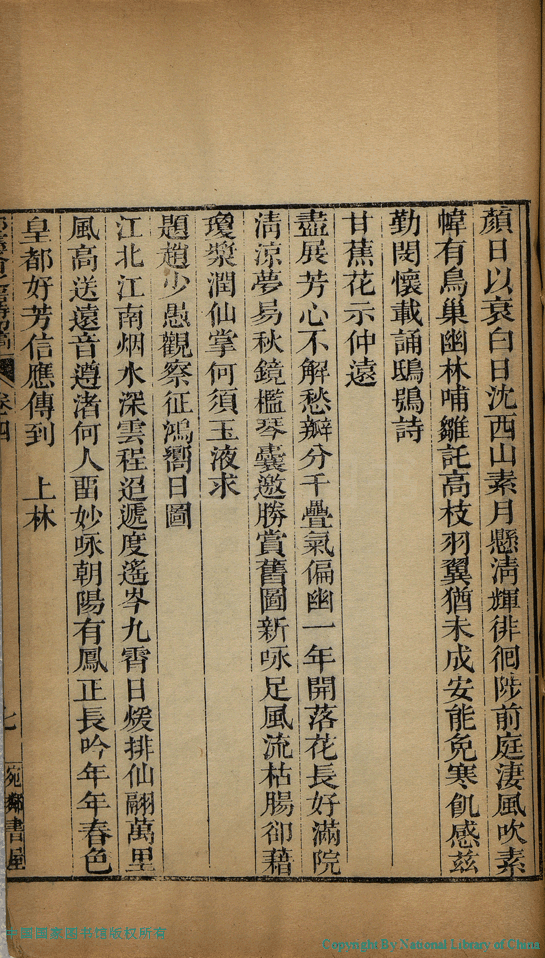 顏日以衰白日沈西山素月懸淸輝徘徊陟前庭淒風吹素
幃有鳥巢幽林哺雛託高枝羽翼猶未成安能免寒飢感茲
勤閔懷載誦鴟鴞詩
甘蕉花示仲遠
盡展芳心不解愁瓣分千疊氣偏幽一年開落花長好滿院
淸涼夢易秋鏡檻琴囊邀勝賞舊圖新咏足風流枯腸卻藉
瓊漿潤仙掌何須玉液求
題趙少愚觀察征鴻嚮日圖
江北江南烟水深雲程迢遞度遙岑九霄日煖排仙翮萬里
風高送遠音遵渚何人畱妙咏朝陽有鳳正長吟年年春色
皇都好芳信應傳到 上林
卷四
七
宛鄰書屋
中国国家图书馆版权所有
Copyright By National Library of China